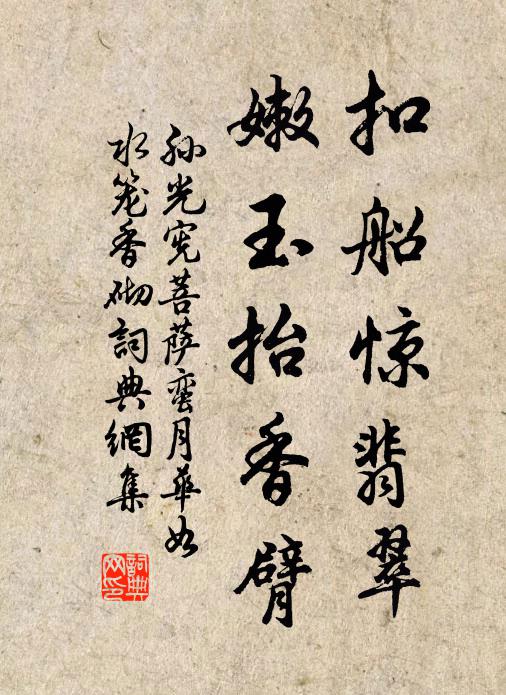 扣船惊翡翠
嫩玉抬香臂
孙光宪菩萨蛮月華如
水笼香砌詞典網集
詞典
网印